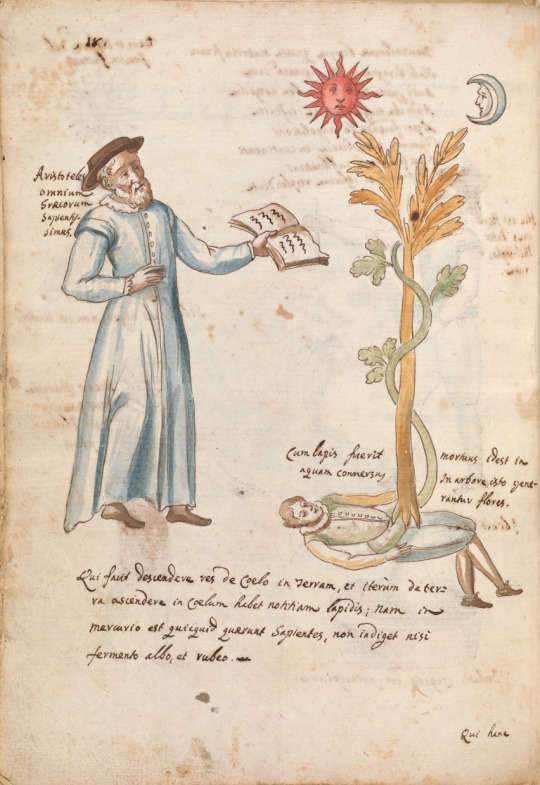 18.
Aristoteles
omnium
Græcorum
Sapientis-
simus.
Cum lapis fuerit mortuus idest in
aquam conversus, In arbore isto gene-
rantur flores.
Qui facit descendere res de Coelo in Terram, et iterum de ter-
ra ascendere in Coelum habet notitiam lapidis; Nam in
mercurio est quicquid quærunt Sapientes, non indiget nisi
fermento albo, et rubeo.
Qui hanc